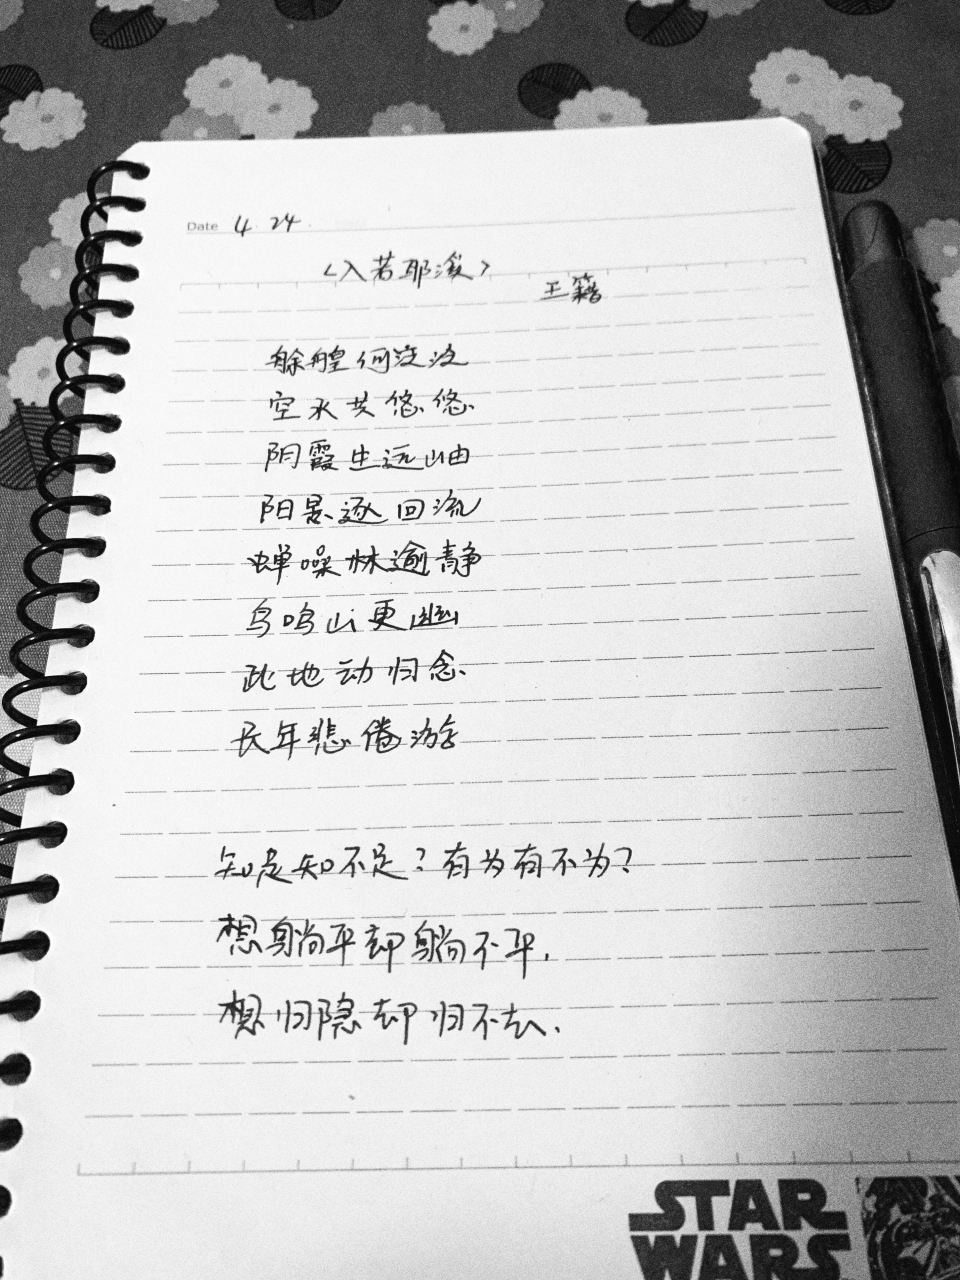 Date 4 24
《入若耶溪》
王籍
艅艎何泛泛
空水共悠悠
阴霞生远岫
阳景逐回流
蝉噪林逾静
鸟鸣山更幽
此地动归念
长年悲倦游
知足知不足？有为有不为？
想躺平却躺不平.
想归隐却归不去.
STAR
WARS